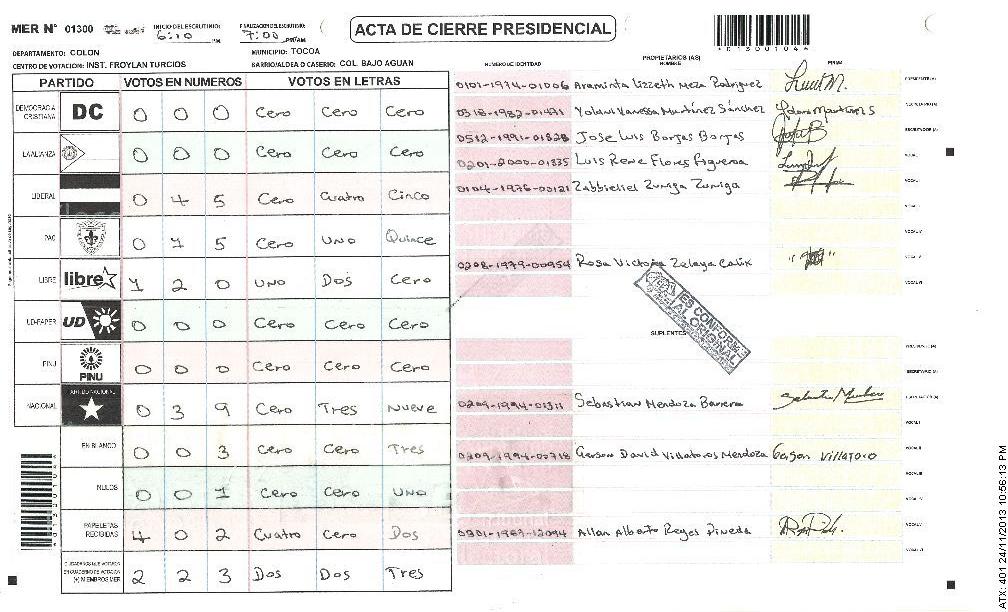 MER Nº 01300
INICIO DEL ESCRUTINIO:
6:10 PM
FINALIZACION DEL ESCRUTINIO:
7:00 PM/AM
ACTA DE CIERRE PRESIDENCIAL
DEPARTAMENTO: COLON
MUNICIPIO: TOCOA
CENTRO DE VOTACION: INST. FROYLAN TURCIOS
BARRIO/ALDEA O CASERIO: COL. BAJO AGUAN
PARTIDO VOTOS EN NUMEROS VOTOS EN LETRAS
DEMOCRACIA CRISTIANA DC 0 0 0 Cero Cero Cero
LA ALIANZA 0 0 0 Cero Cero Cero
LIBERAL 0 4 5 Cero Cuatro Cinco
PAC 0 1 5 Cero Uno Quince
LIBRE libre 1 2 0 Uno Dos Cero
UD-FAPER UD 0 0 0 Cero Cero Cero
PINU PINU 0 0 0 Cero Cero Cero
NACIONAL PARTIDO NACIONAL 0 3 9 Cero Tres Nueve
EN BLANCO 0 0 3 Cero Cero Tres
NULOS 0 0 1 Cero Cero Uno
PAPELETAS RECIBIDAS 4 0 2 Cuatro Cero Dos
CIUDADANOS QUE VOTARON EN CUADERNO DE VOTACION (+) MIEMBROS MER 2 2 3 Dos Dos Tres
PROPIETARIOS (AS)
NUMERO DE IDENTIDAD NOMBRE FIRMA
0101-1974-01006 Araminta Lizzeth Meza Rodriguez PRESIDENTE (A)
0318-1982-01471 Yolani Vanessa Martínez Sánchez SECRETARIO (A)
0512-1991-01828 Jose Luis Borjas Borjas ESCRUTADOR (A)
0201-2000-01335 Luis Rene Flores Figueroa VOCAL I
0104-1976-00121 Zuniga Zuniga VOCAL II
VOCAL IV
0208-1979-00954 Rosa Victoria Zelaya Calix VOCAL V
VOCAL VI
ES CONFORME AL ORIGINAL
SUPLENTES
PRESIDENTE (A)
SECRETARIO (A)
0209-1994-01311 Sebastian Mendoza Barrera ESCRUTADOR (A)
VOCAL I
0209-1994-00718 Gerson David Villatoros Mendoza Gerson Villatoro VOCAL II
VOCAL III
VOCAL IV
0801-1983-12094 Allan Alberto Reyes Pineda VOCAL V
VOCAL VI
ATX: 401 24/11/2013 10:56:13 PM